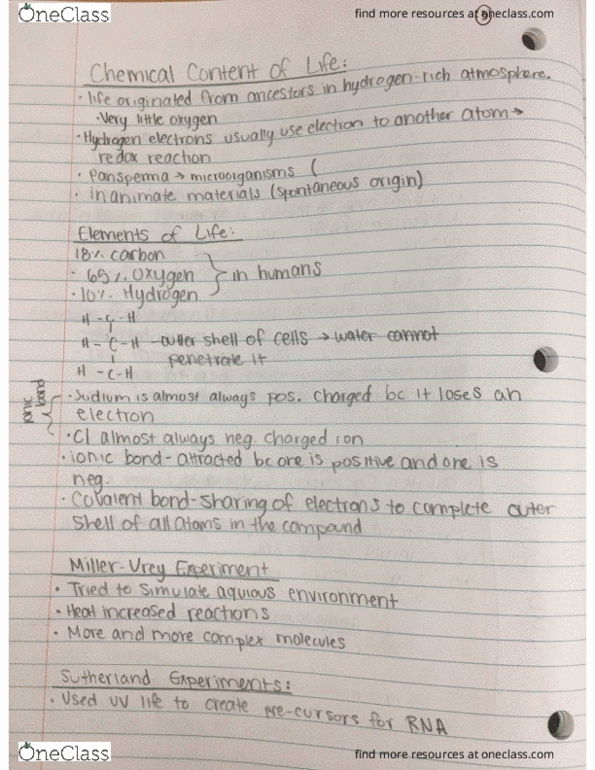 OneClass
find more resources at oneclass.com
Chemical Content of Life:
• life originated from ancestors in hydrogen-rich atmosphere.
• Very little oxygen
• Hydrogen electrons usually use election to another atom →
redox reaction
• Pansperma → microorganisms (
• inanimate materials (spontaneous origin)
Elements of Life:
18% carbon
• 65% Oxygen } in humans
• 10% Hydrogen
H - C - H
H - C - H - outter shell of cells → water cannot
penetrate it
H - C - H
ionic bond
• Sudium is almost always pos. charged bc it loses an
electron
• Cl almost always neg. charged ion
• ionic bond - attracted bc one is positive and one is
neg.
• Covalent bond - sharing of electrons to complete outer
shell of all atoms in the compound
Miller-Urey Experiment
• Tried to simulate aquious environment
• Heat increased reactions
• More and more complex molecules
Sutherland Experiments:
• Used UV life to create pre-cursors for RNA
OneClass
find more resources at oneclass.com